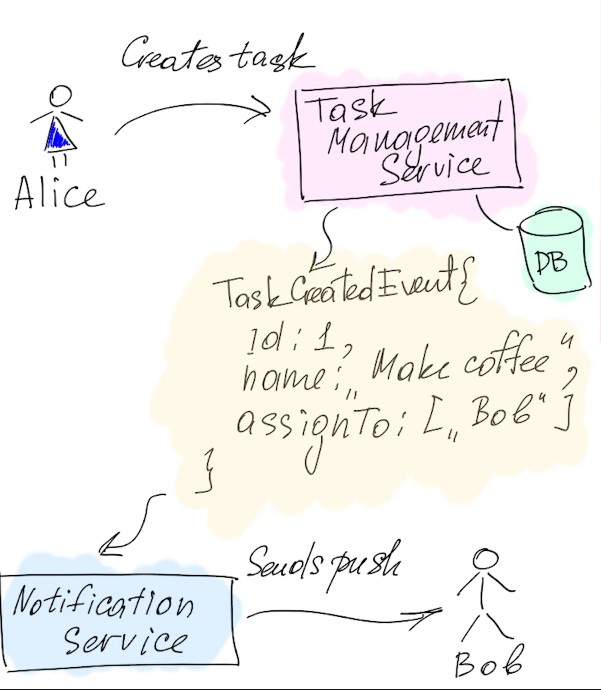 Creates task
Alice
Task
Management
Service
DB
TaskCreatedEvent{
Id: 1,
name: „Make coffee“,
assignTo: [„Bob“]
}
Sends push
Notification
Service
Bob